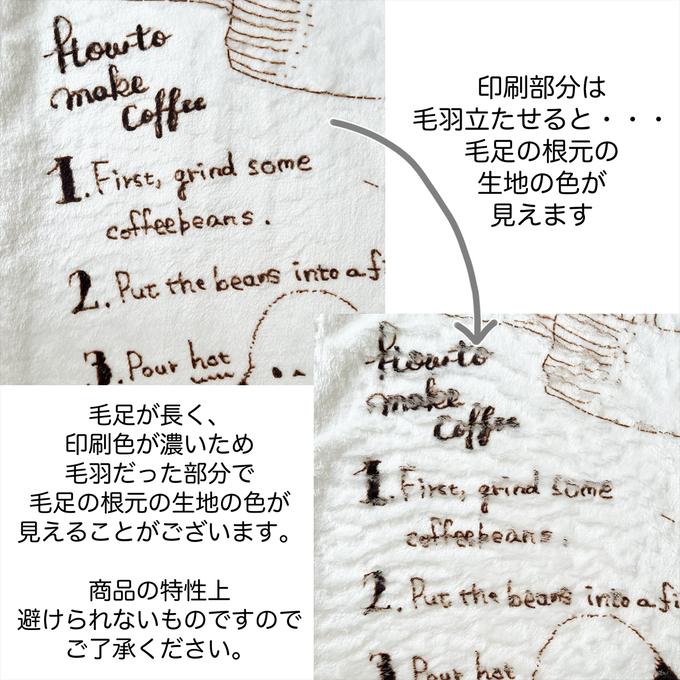 How to
make
Coffee
1. First, grind some
coffeebeans.
2. Put the beans into a fi
3. Pour hot
印刷部分は
毛羽立たせると・・・
毛足の根元の
生地の色が
見えます
毛足が長く、
印刷色が濃いため
毛羽だった部分で
毛足の根元の生地の色が
見えることがございます。
商品の特性上
避けられないものですので
ご了承ください。
How to
make
Coffee
1. First, grind some
coffeebeans.
2. Put the beans into a fi
3. Pour hot